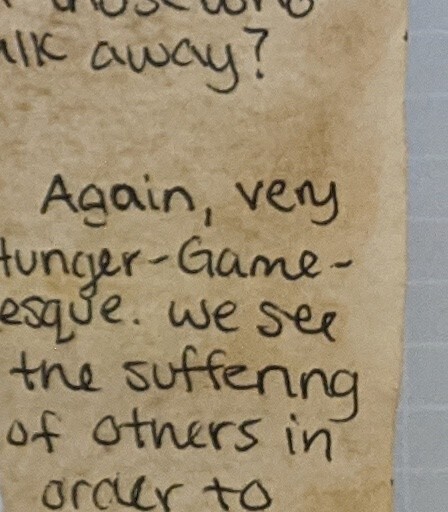 those who
alk away?
Again, very
Hunger-Game-
esque. we see
the suffering
of others in
order to